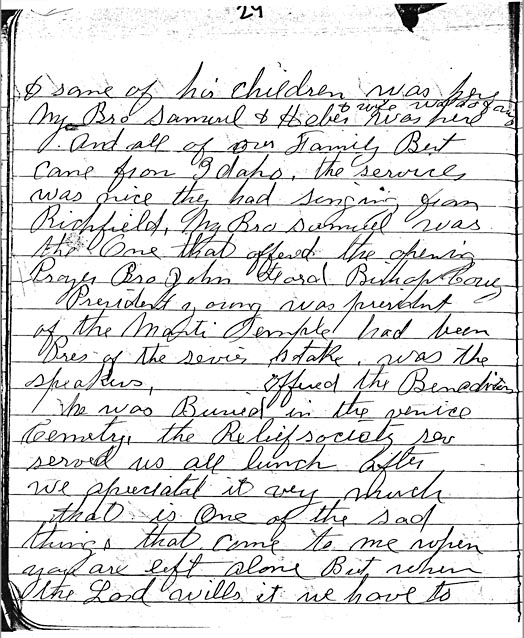 29
& some of his children was here
My Bro Samuel & Heber & wife was here
And all of our Family Bert
came from Idaho, the services
was nice they had singing from
Richfield, My Bro Samuel was
the One that offered the opening
Prayer Bro John Bishop
President young was president
of the Manti Temple had been
Pres of the sevier stake, was the
speakers, offered the Benediction
he was Buried in the venice
Cemetry, the Relief society
served us all lunch after
we apreciatal it very much
that is One of the sad
things that come to me when
you are left alone But when
the Lord wills it we have to